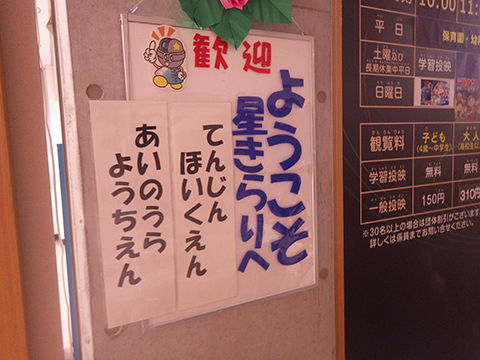 歓迎
ようこそ
星きらりへ
てんじん
ほいくえん
あいのうら
ようちえん
10:00
11:
平日
保育園・幼
土曜及び
長期休業中平日
学習投映
日曜日
観覧料
子ども
(4歳〜中学生)
大人
(高校生以
学習投映
無料
無料
一般投映
150円
310円
※30名以上の場合は団体割引がございます
詳しくは係員までお問い合せください。